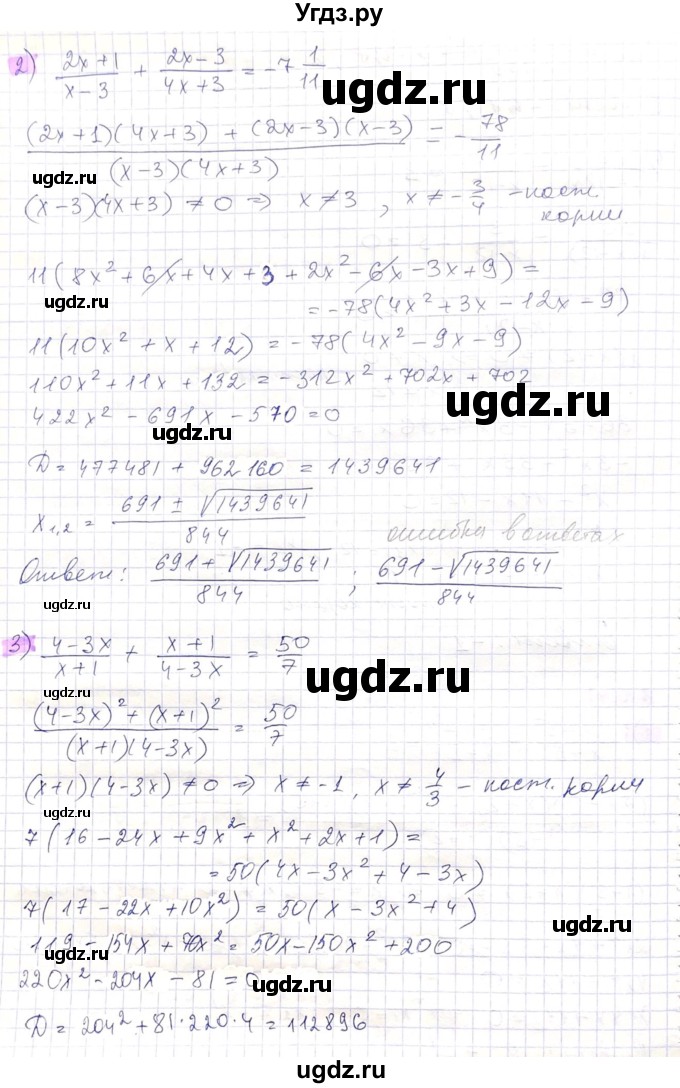 Угдз.ру
2) (2x+1)/(x-3) + (2x-3)/(4x+3) = -7 1/11
ugdz.ru
((2x+1)(4x+3) + (2x-3)(x-3))/((x-3)(4x+3)) = -78/11
ugdz.ru
(x-3)(4x+3) ≠ 0 => x ≠ 3, x ≠ -3/4 - пост. корни
11(8x² + 6x + 4x + 3 + 2x² - 6x - 3x + 9) =
ugdz.ru
= -78(4x² + 3x - 12x - 9)
11(10x² + x + 12) = -78(4x² - 9x - 9)
110x² + 11x + 132 = -312x² + 702x + 702
ugdz.ru
422x² - 691x - 570 = 0
ugdz.ru
D = 477481 + 962160 = 1439641
x1,2 = (691 ± √1439641)/844
ошибка в ответах
Ответ: (691 + √1439641)/844 ; (691 - √1439641)/844
ugdz.ru
3) (4-3x)/(x+1) + (x+1)/(4-3x) = 50/7
ugdz.ru
ugdz.ru
((4-3x)² + (x+1)²)/((x+1)(4-3x)) = 50/7
ugdz.ru
(x+1)(4-3x) ≠ 0 => x ≠ -1, x ≠ 4/3 - пост. корни
7(16 - 24x + 9x² + x² + 2x + 1) =
ugdz.ru
= 50(4x - 3x² + 4 - 3x)
7(17 - 22x + 10x²) = 50(x - 3x² + 4)
ugdz.ru
119 - 154x + 70x² = 50x - 150x² + 200
ugdz.ru
220x² - 204x - 81 = 0
D = 204² + 81·220·4 = 112896
ugdz.ru